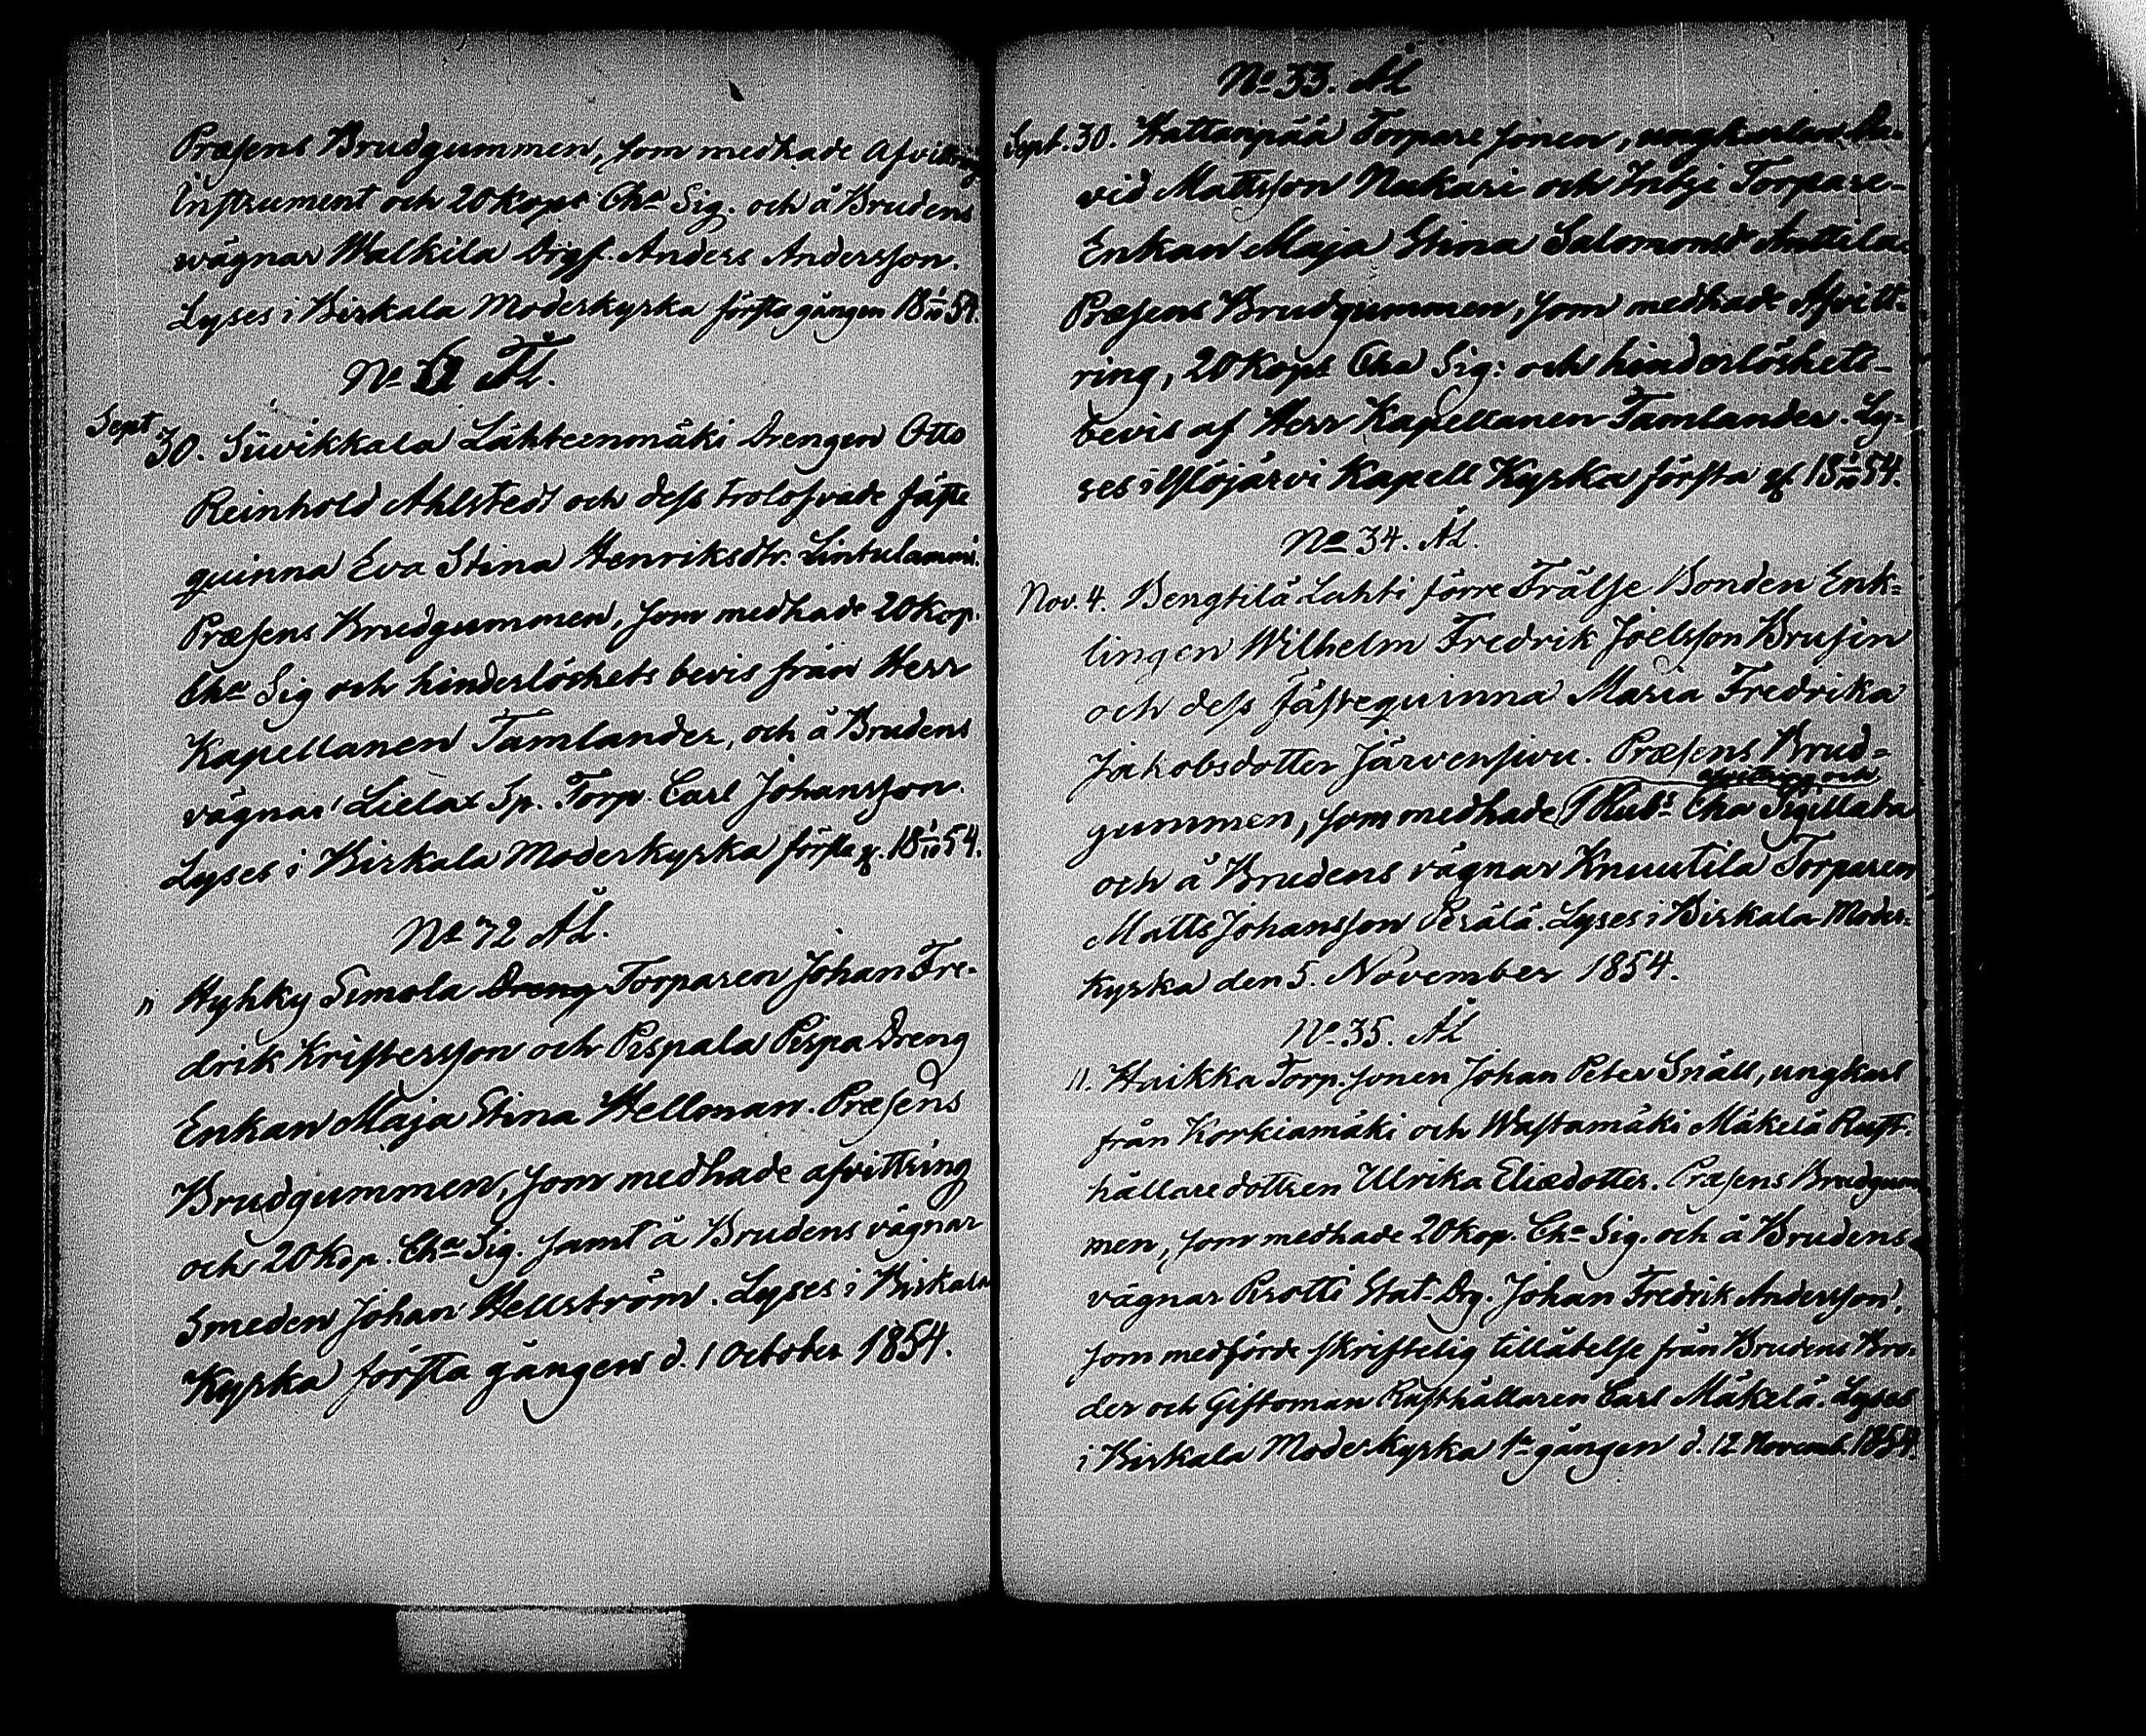 Præsens Brudgummen, som medhade Afvittring
Instrument och 20 kops Cha Sig. och å Brudens
wägnar Walkila Drgs. Anders Andersson.
Lyses i Birkala Moderkyrka första gången 18 1/10 54.
No Äl.
Sept. 30. Siivikkala Lähteenmäki Drengen Otto
Reinhold Ahlstedt och dess trolofvade fäste
quinna Eva Stina Henriksdtr. Lintulammi.
Præsens Brudgummen, som medhade 20 kop.
Cha Sig och hinderlöshets bevis från Herr
Kapellanen Tamlander, och å Brudens
vägnar Lielax Sp. Torp. Carl Johansson.
Lyses i Birkala Moderkyrka första g. 18 1/10 54.
No 72 Äl.
" Hyhky Simola Dreng Torparen Johan Fre-
drik Kristersson och Pispala Pispa Dreng
Enkan Maja Stina Hellman. Præsens
Brudgummen, som medhade afvittring
och 20 Kop. Cha Sig. samt å Brudens vägnar
Smeden Johan Hellström. Lyses i Birkala
Kyrka första gången d. 1 October 1854.
No 33. Äl
Sept. 30. Hattanpää Torpare sonen, ungkarlen Da-
vid Mattsson Nakari och Intzi Torpare-
Enkan Maja Stina Salomonsdr Anttila.
Præsens Brudgummen, som medhade Afvitt-
ring, 20 kops Cha Sig: och hinderlöshets-
bevis af Herr Kapellanen Tamlander. Ly-
ses i Ylöjärvi Kapell Kyrka första g. 18 1/10 54.
No 34. Äl.
Nov. 4. Bengtilä Lahti förre Frälse Bonden Enk-
lingen Wilhelm Fredrik Joelsson Brusin
och dess fästequinna Maria Fredrika
Jakobsdotter Järvensivu. Præsens Brud-
afvittring och
gummen, som medhade 1 Rubs Cha Sigillata
och å Brudens vägnar Knuutila Torparen
Matts Johansson Perälä. Lyses i Birkala Moder-
kyrka den 5. November 1854.
No 35. Äl
11. Haikka Torp.sonen Johan Peter Snäll, ungkarl
från Korkiamäki och Wastamäki Mäkelä Rust-
hållare dottren Ulrika Eliædotter. Præsens Brudgum
men, som medhade 20 kop. Cha Sig. och å Brudens
vägnar Pirotti Stat. Drg. Johan Fredrik Andersson,
som medförde skriftelig tillåtelse från Brudens Bro-
der och Giftoman Rusthållaren Carl Mäkelä. Lyses
i Birkala Moderkyrka 1a gången d. 12 Novemb. 1854.